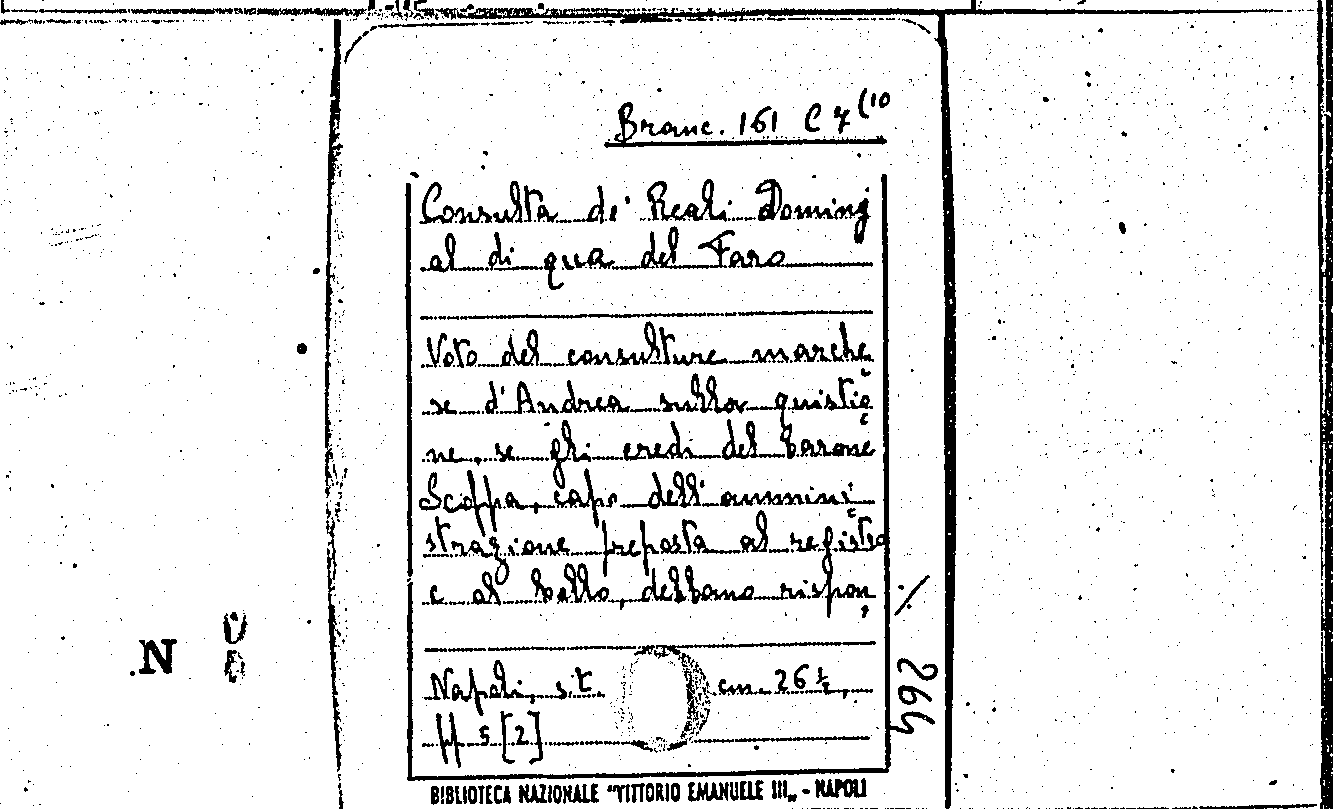 Branc. 161 C 7 (10
Consulta de' Reali Dominj
al di qua del Faro
Voto del consultore marche
se d'Andrea sulla quistio
ne, se gli eredi del barone
Scoppa, capo dell'ammini
strazione preposta al registro
e al bollo, debbano rispon
./.
Napoli, s.t. cm. 26 ½,
pp 5 [2]
264
BIBLIOTECA NAZIONALE "VITTORIO EMANUELE III„ - NAPOLI
N